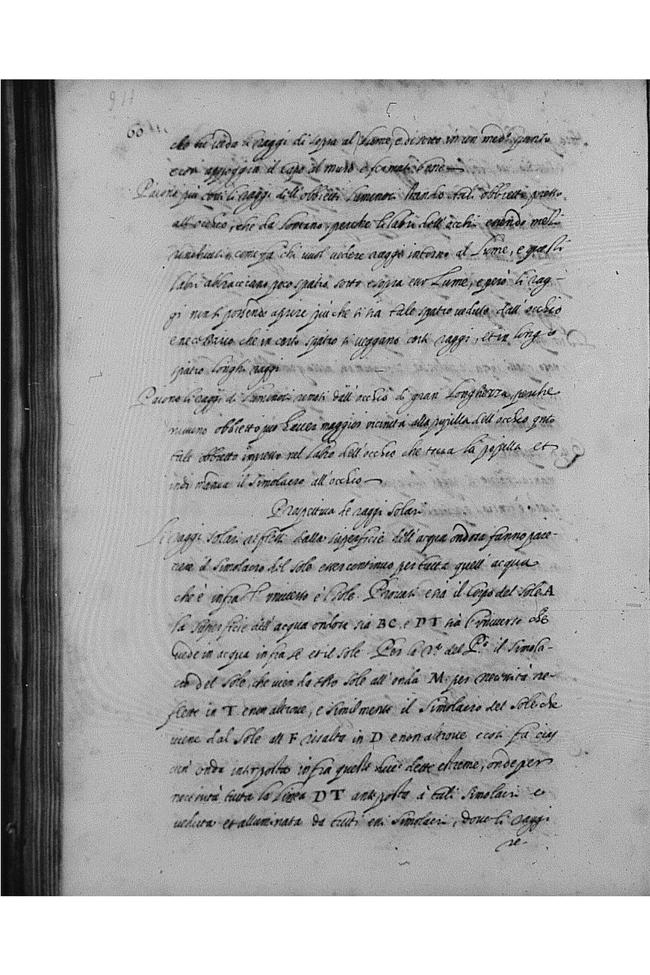 60
che si veda li raggi di sopra al lume, e di sotto in un med.º punto
e così appoggia il capo al muro
Paiono piu corti li raggi dell'obbietti luminosi stando tali obbietti presso
all'occhio, che da lontano, perche li labri dell'occhi essendo mezzi
come fa chi vuol vedere raggi intorno al lume, e questi
labri abbracciano poco spatio sotto e sopra esso lume, e però li rag-
gi non si possendo aprire più che si sia tale spatio veduto dall'occhio
è necessario che in corto spatio si veggano corti raggi, et in longo
spatio longhi raggi
Paiono li raggi de luminosi veduti dall'occhio di gran longhezza, perche
nissuno obbietto può haver maggior vicinità alla pupilla dell'occhio qnto
tale obbietto impresso nel labro dell'occhio che tocca la pupilla et
indi manda il simolacro all'occhio
Prospettiva de raggi solari
Li raggi solari reflessi dalla superficie dell'acqua ondosa fanno pare-
re il simolacro del sole esser continuo per tutta quell'acqua
che è infra l'universo e 'l sole. Provasi e sia il corpo del sole A
la superficie dell'acqua ondosa sia BC, e DT sia l'universo che
vede in acqua infra se et il sole. Per la p.ª del P.º il simola-
cro del sole, che vien da esso sole all'onda M per necessità re-
flette in T e non altrove, e similmente il simolacro del sole che
viene dal sole all F risalta in D e non altrove e così fa cias
cun' onda interposta infra quelle due dette estreme, onde per
necessità tutta la linea DT antiposta à tali simolacri è
veduta et alluminata da tutti essi simolacri, dove li raggi
re-